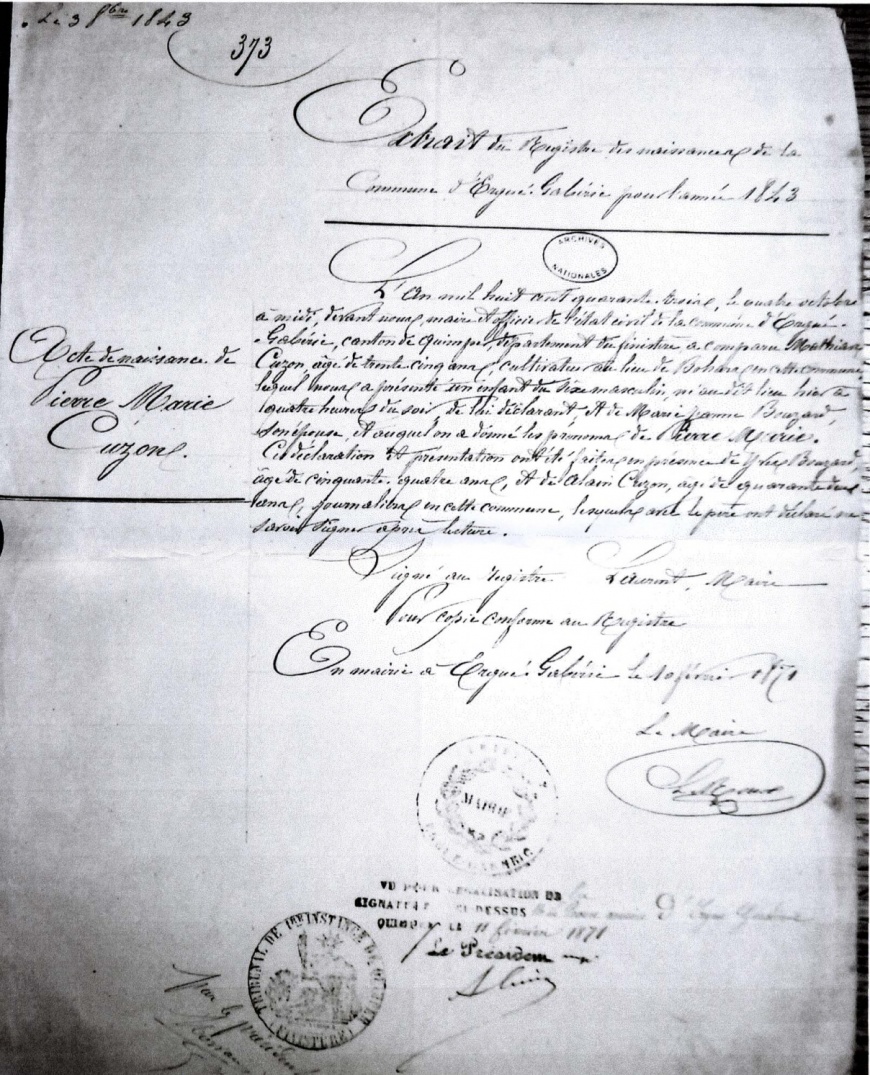 Le 3 8bre 1843
373
Extrait du Registre des naissances de la
Commune d'Ergué-Gabéric pour l'année 1843
ARCHIVES
NATIONALES
Acte de naissance de
Pierre Marie
Cuzon.
L'An mil huit cent quarante trois, le quatre octobre
à midi, devant nous, maire et officier de l'état civil de la commune d'Ergué-
Gabéric, canton de Quimper, département du finistère, a comparu Mathias
Cuzon, âgé de trente cinq ans, cultivateur au lieu de Bohars en cette commune
lequel nous a présenté un enfant du sexe masculin, né au dit lieu hier à
quatre heures du soir, de lui déclarant, et de Marie Jeanne Bouzard,
son épouse, et auquel on a donné les prénoms de Pierre Marie.
Ces déclaration et présentation ont été faites en présence de Yves Bouzard,
âgé de cinquante-quatre ans, et de Alain Cuzon, âgé de quarante deux
ans, journaliers en cette commune, lesquels avec le père ont déclaré ne
savoir signer après lecture.
Signé au registre Laurent, Maire
Pour copie conforme au Registre
En mairie à Ergué-Gabéric le 10 février 1871
Le Maire
MAIRIE
VU POUR LEGALISATION DE la
SIGNATURE CI-DESSUS maire d'Ergué Gabéric
QUIMPER LE 11 février 1871
Le Président
TRIBUNAL DE 1RE INSTANCE DE QUIMPER
(FINISTERE)